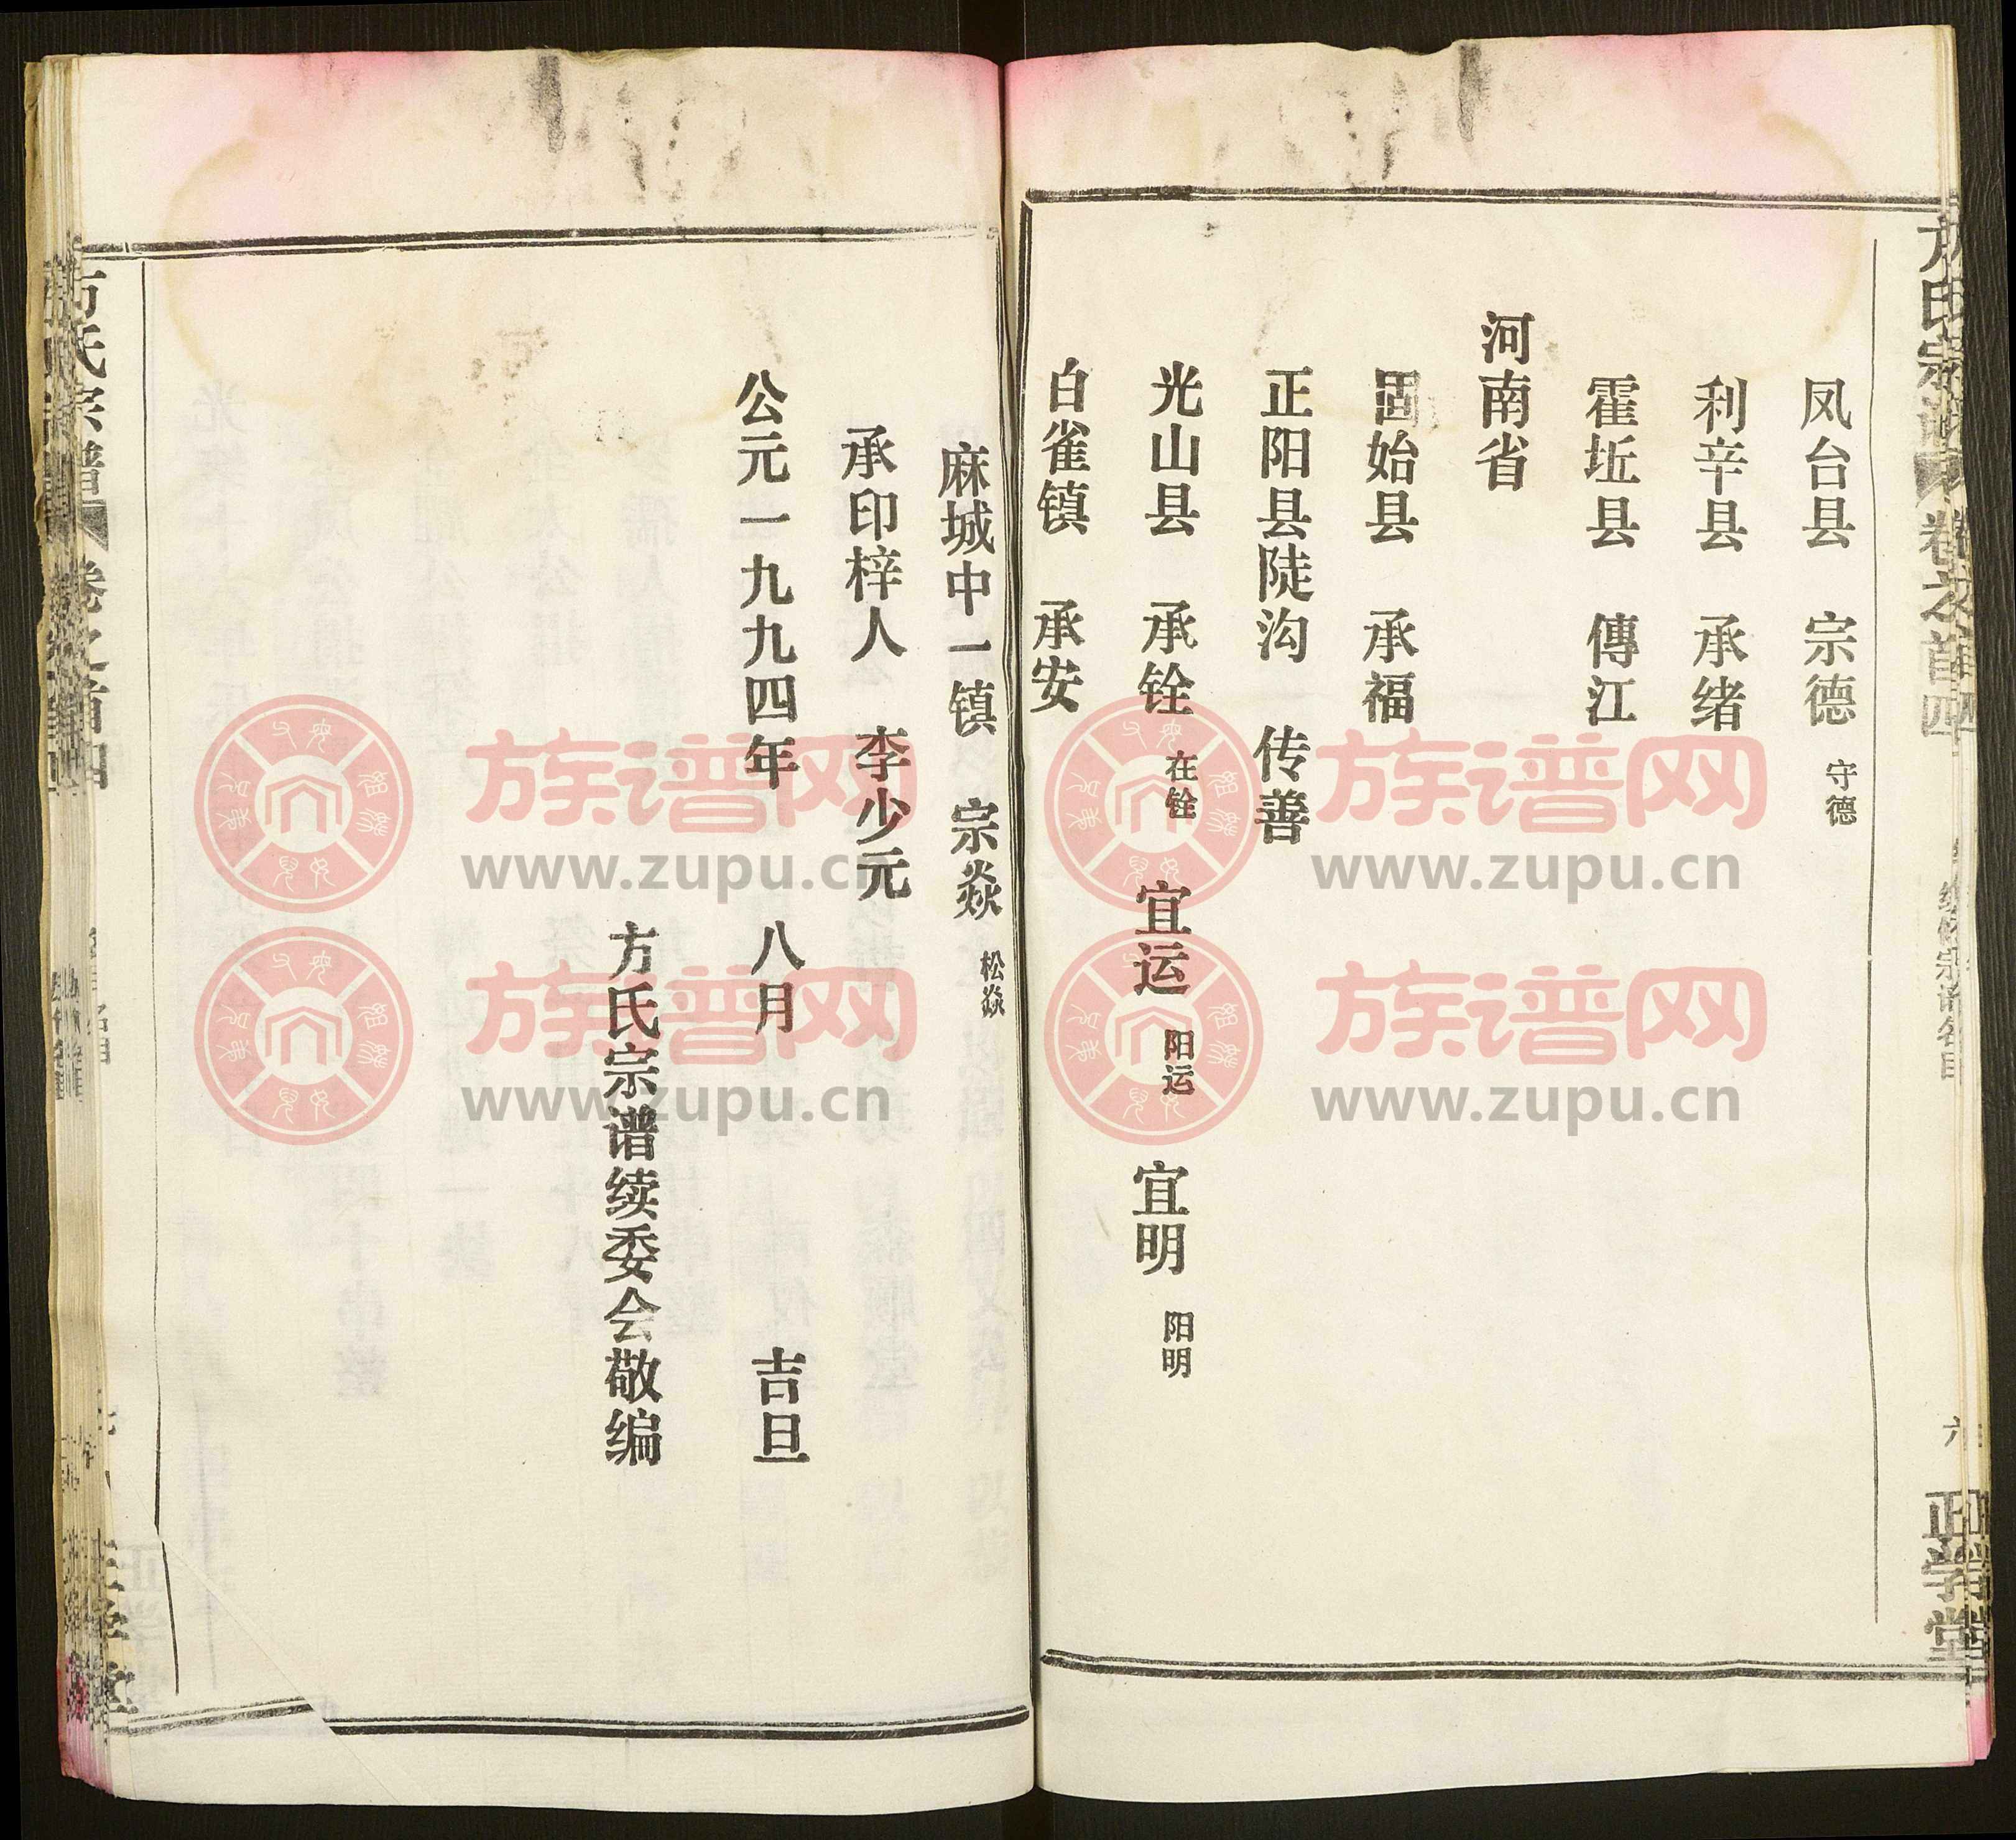 方氏宗谱 卷之首四 续修宗谱名目 六 正学堂
凤台县 宗德 守德
利辛县 承绪
霍坵县 傳江
河南省
固始县 承福
正阳县陡沟 传善
光山县 承铨 在铨 宜运 阳运 宜明 阳明
白雀镇 承安
麻城中一镇 宗焱 松焱
承印梓人 李少元
公元一九九四年 八月 吉旦
方氏宗谱续委会敬编
方氏宗谱 卷之首四
族谱网
www.zupu.cn
族谱网
www.zupu.cn
族谱网
www.zupu.cn
族谱网
www.zupu.cn